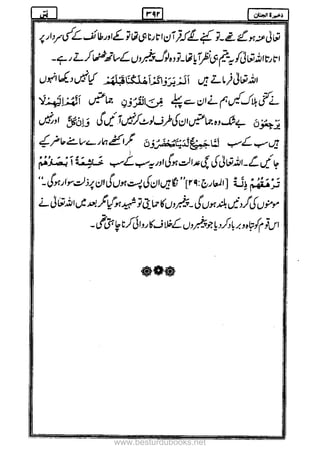 ذخیرۃ الجنان ۳۹۲ یٰسٓ
تعالیٰ عنہ ہو گئے تھے۔ تو کہنے لگے کہ قرآن اتارنا ہی تھا تو مکے اور طائف کے کسی سردار پر
اتارتا اللہ تعالیٰ کو یہ یتیم ہی نظر آیا تھا۔ تو وہ لوگ پیغمبروں کے ساتھ ٹھٹھا کرتے رہے۔
اللہ تعالیٰ فرماتے ہیں اَلَمْ يَرَوْا كَمْ اَهْلَكْنَا قَبْلَهُمْ کیا نہیں دیکھا انہوں
نے کتنی ہلاک کیں ہم نے ان سے پہلے مِّنَ الْقُرُوْنِ جماعتیں اَنَّهُمْ اِلَيْهِمْ لَا
يَرْجِعُوْنَ بے شک وہ جماعتیں ان کی طرف لوٹ کر نہیں آئیں گی وَاِنْ كُلٌّ اور نہیں
ہیں سب کے سب لَّمَّا جَمِيْعٌ لَّدَيْنَا مُحْضَرُوْنَ مگر اکٹھے ہمارے سامنے حاضر کیے
جائیں گے۔ اللہ تعالیٰ کی سچی عدالت ہوگی اور یہ سب کے سب خَاشِعَةً اَبْصَارُهُمْ
تَرْهَقُهُمْ ذِلَّةٌ [المعارج: ۴۴] "نگاہیں ان کی پست ہوں گی ان پر ذلت سوار ہوگی۔"
مومنوں کی گردنیں بلند ہوں گی۔ پیغمبروں کا حمایتی تو شہید ہو گیا مگر بعد میں اللہ تعالیٰ نے
اس قوم کو تباہ و برباد کر دیا جو پیغمبروں کے خلاف کارروائی کرنا چاہتی تھی۔
www.besturdubooks.net